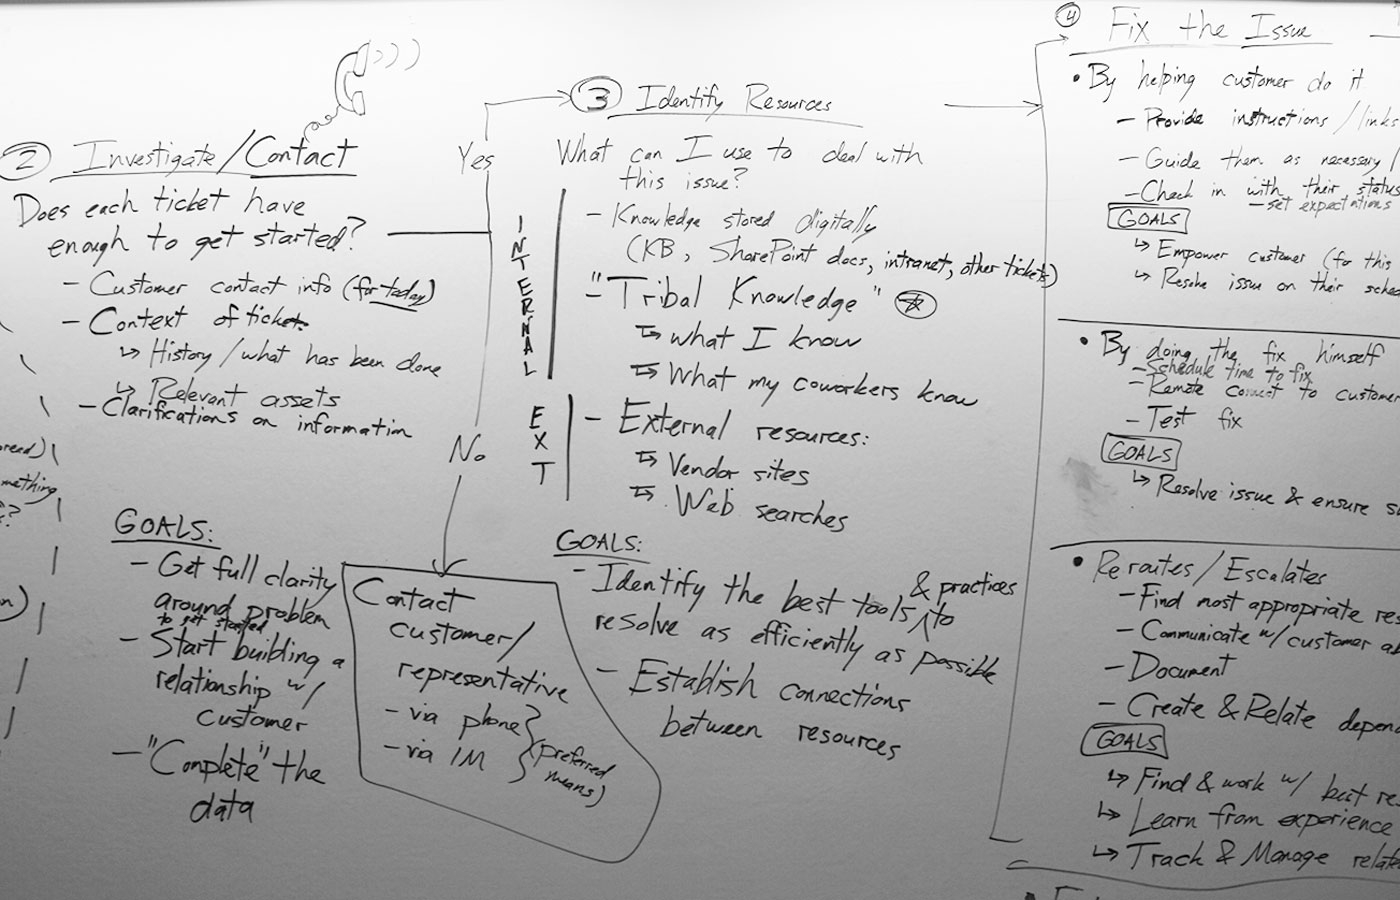 ② Investigate/Contact
Does each ticket have
enough to get started?
- Customer contact info (for today)
- Context of ticket
↳ History/what has been done
↳ Relevant assets
- Clarifications on information
GOALS:
- Get full clarity
around problem
to get started
- Start building a
relationship w/
customer
- "Complete" the
data
Yes
No
Contact
customer/
representative
- via phone
- via IM
(preferred
means)
③ Identify Resources
What can I use to deal with
this issue?
INTERNAL
- Knowledge stored digitally
(KB, SharePoint docs, intranet, other tickets)
- "Tribal Knowledge"
↳ What I know
↳ What my coworkers know
EXT
- External resources:
↳ Vendor sites
↳ Web searches
GOALS:
- Identify the best tools & practices to
resolve as efficiently as possible
- Establish connections
between resources
④ Fix the Issue
• By helping customer do it
- Provide instructions/links
- Guide them as necessary/
- Check in with their status
- set expectations
GOALS
↳ Empower customer (for this
↳ Resolve issue on their sched
• By doing the fix himself
- Schedule time to fix
- Remote connect to customer
- Test fix
GOALS
↳ Resolve issue & ensure
• Reroutes/Escalates
- Find most appropriate res
- Communicate w/ customer ab
- Document
- Create & Relate depend
GOALS
↳ Find & work w/ best re
↳ Learn from experience
↳ Track & Manage relate